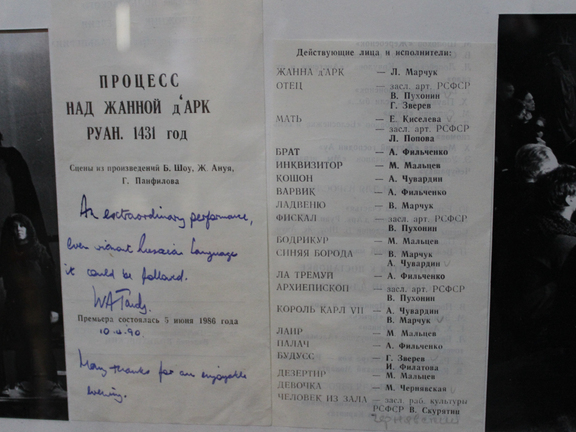 ПРОЦЕСС
НАД ЖАННОЙ д'АРК
РУАН. 1431 год
Сцены из произведений Б. Шоу, Ж. Ануя,
Г. Панфилова
An extraordinary performance,
even without Russian language
it could be followed.
Премьера состоялась 5 июня 1986 года
10.4.90.
Many thanks for an enjoyable
evening.
Действующие лица и исполнители:
ЖАННА д'АРК — Л. Марчук
ОТЕЦ — засл. арт. РСФСР
В. Пухонин
Г. Зверев
МАТЬ — Е. Киселева
— засл. арт. РСФСР
Л. Попова
БРАТ — А. Фильченко
ИНКВИЗИТОР — М. Мальцев
КОШОН — А. Чувардин
ВАРВИК — А. Фильченко
ЛАДВЕНЮ — В. Марчук
ФИСКАЛ — засл. арт. РСФСР
В. Пухонин
БОДРИКУР — М. Мальцев
СИНЯЯ БОРОДА — В. Марчук
А. Чувардин
ЛА ТРЕМУЙ — А. Фильченко
АРХИЕПИСКОП — засл. арт. РСФСР
В. Пухонин
КОРОЛЬ КАРЛ VII — А. Чувардин
В. Марчук
ЛАИР — М. Мальцев
ПАЛАЧ — А. Фильченко
БУДУСС — Г. Зверев
И. Филатова
ДЕЗЕРТИР — М. Мальцев
ДЕВОЧКА — М. Чернявская
ЧЕЛОВЕК ИЗ ЗАЛА — засл. раб. культуры
РСФСР В. Скурятин